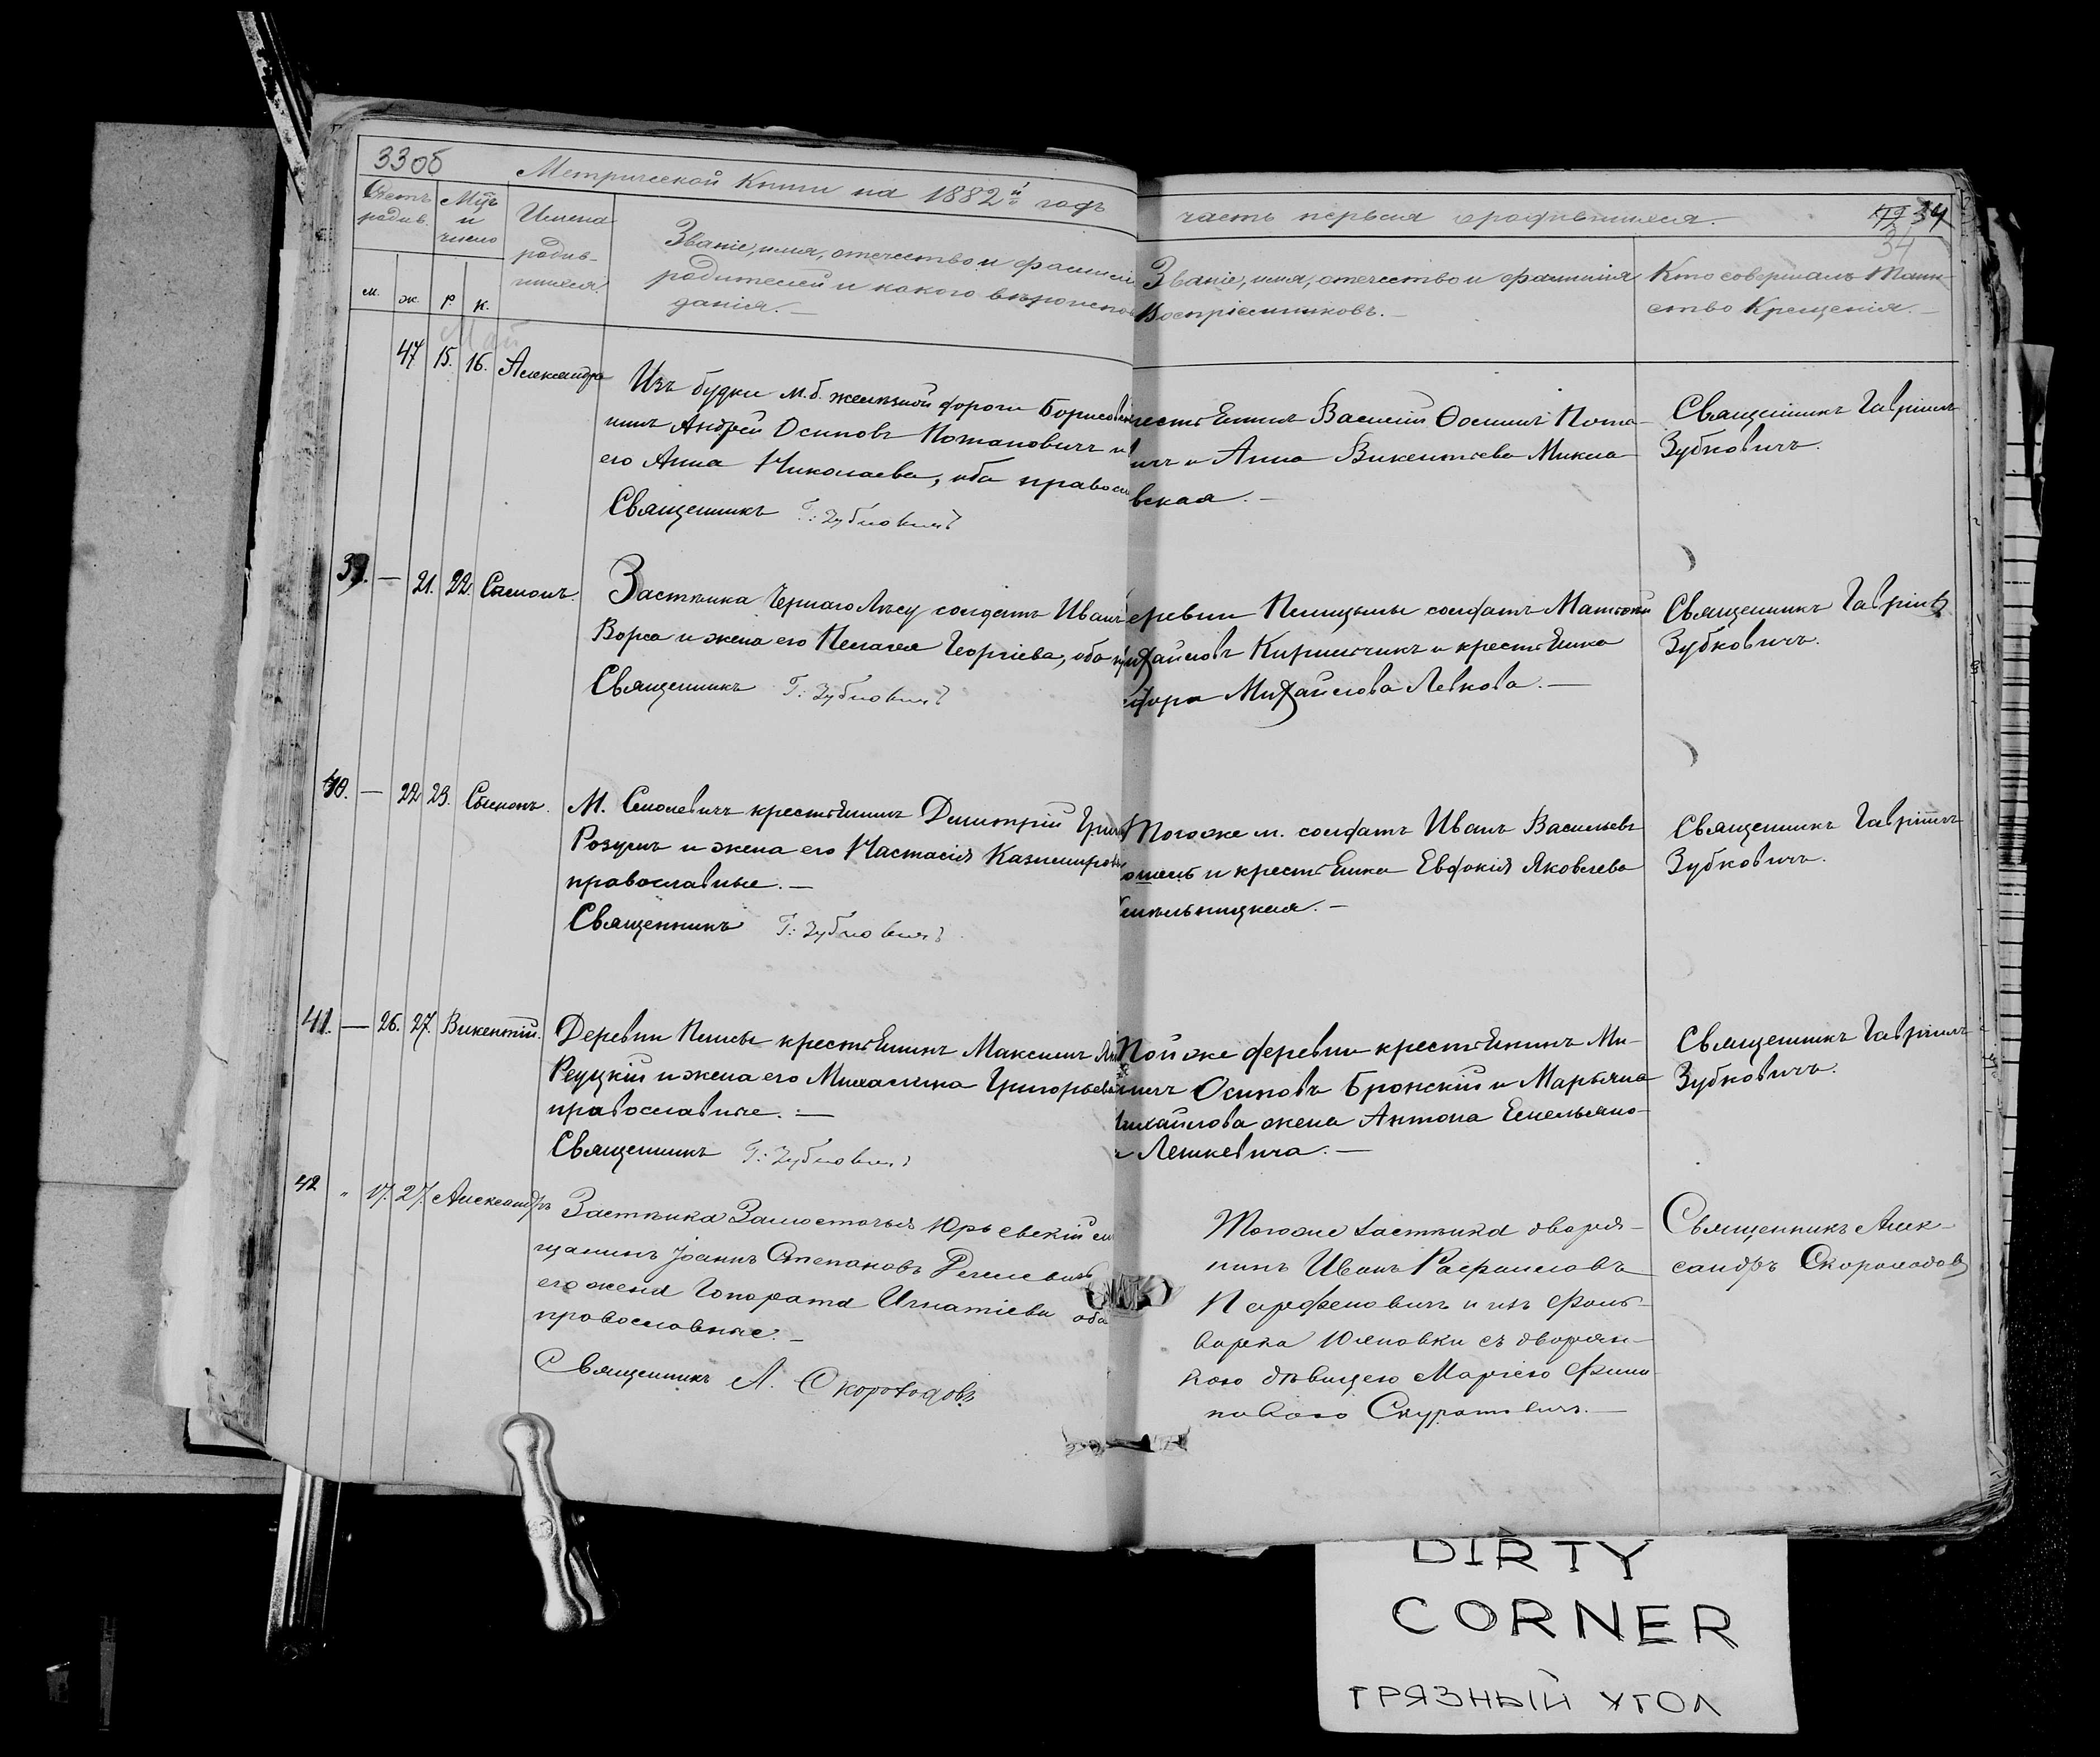 33 об
Метрической Книги на 1882й годъ
часть первая о родившихся.
34
34
Счетъ родив.
Мцъ и число
Имена родив-
шихся.
Званіе, имя, отчество и фамилія
родителей и какого вѣроиспов
данія. —
Званіе, имя, отчество и фамилія
Воспріемниковъ. —
Кто совершалъ Таин-
ство Крещенія. —
м. ж. р. к.
Май
47 15. 16. Александра
Изъ будки М.б. желѣзной дороги Борисовск
нинъ Андрей Осиповъ Потаповичъ и
его Анна Николаева, оба правосл
Священникъ Г: Зубковичъ
рестьянинъ Василій Осиповъ Пота-
ичъ и Анна Викентіева Микла
вская. —
Священникъ Гавріилъ
Зубковичъ.
39. — 21. 22. Симонъ.
Застѣнка Чернаго Лѣсу солдатъ Иванъ
Ворса и жена его Пелагея Георгіева, оба пр
Священникъ Г: Зубковичъ
еревни Пелицы солдатъ Матвѣй
ихайловъ Кирильчикъ и крестьянка
Михайлова Левкова. —
Священникъ Гавріилъ
Зубковичъ.
40. — 22 23. Симонъ.
М. Смолевичъ крестьянинъ Димитрій Григ
Розумъ и жена его Настасія Казимирова
православные. —
Священникъ Г: Зубковичъ
Того же м. солдатъ Иванъ Васильевъ
и крестьянка Евдокія Яковлева
Священникъ Гавріилъ
Зубковичъ.
41. — 26. 27. Викентій.
Деревни Плисы крестьянинъ Максимъ
Реуцкій и жена его Михалина Григорьева
православные. —
Священникъ Г: Зубковичъ
Той же деревни крестьянинъ Ми-
Осиповъ Бронскій и Марьяна
Михайлова жена Антона Емельяно-
а Лешкевича. —
Священникъ Гавріилъ
Зубковичъ.
42 " 17. 27. Александръ
Застѣнка Замосточья Юрьевскій мѣ
щанинъ Іоаннъ Степановъ
его жена Гонората Игнатіева оба
православные. —
Священникъ А. Скороходовъ
Того же застѣнка дворя-
нинъ Иванъ Рафаиловъ
Парфеновичъ и изъ фоль-
варка Юляновки съ дворян-
кою дѣвицею Маріею Фили-
повою Скуратовичъ. —
Священникъ Алек-
сандръ Скороходовъ
DIRTY
CORNER
ГРЯЗНЫЙ УГОЛ